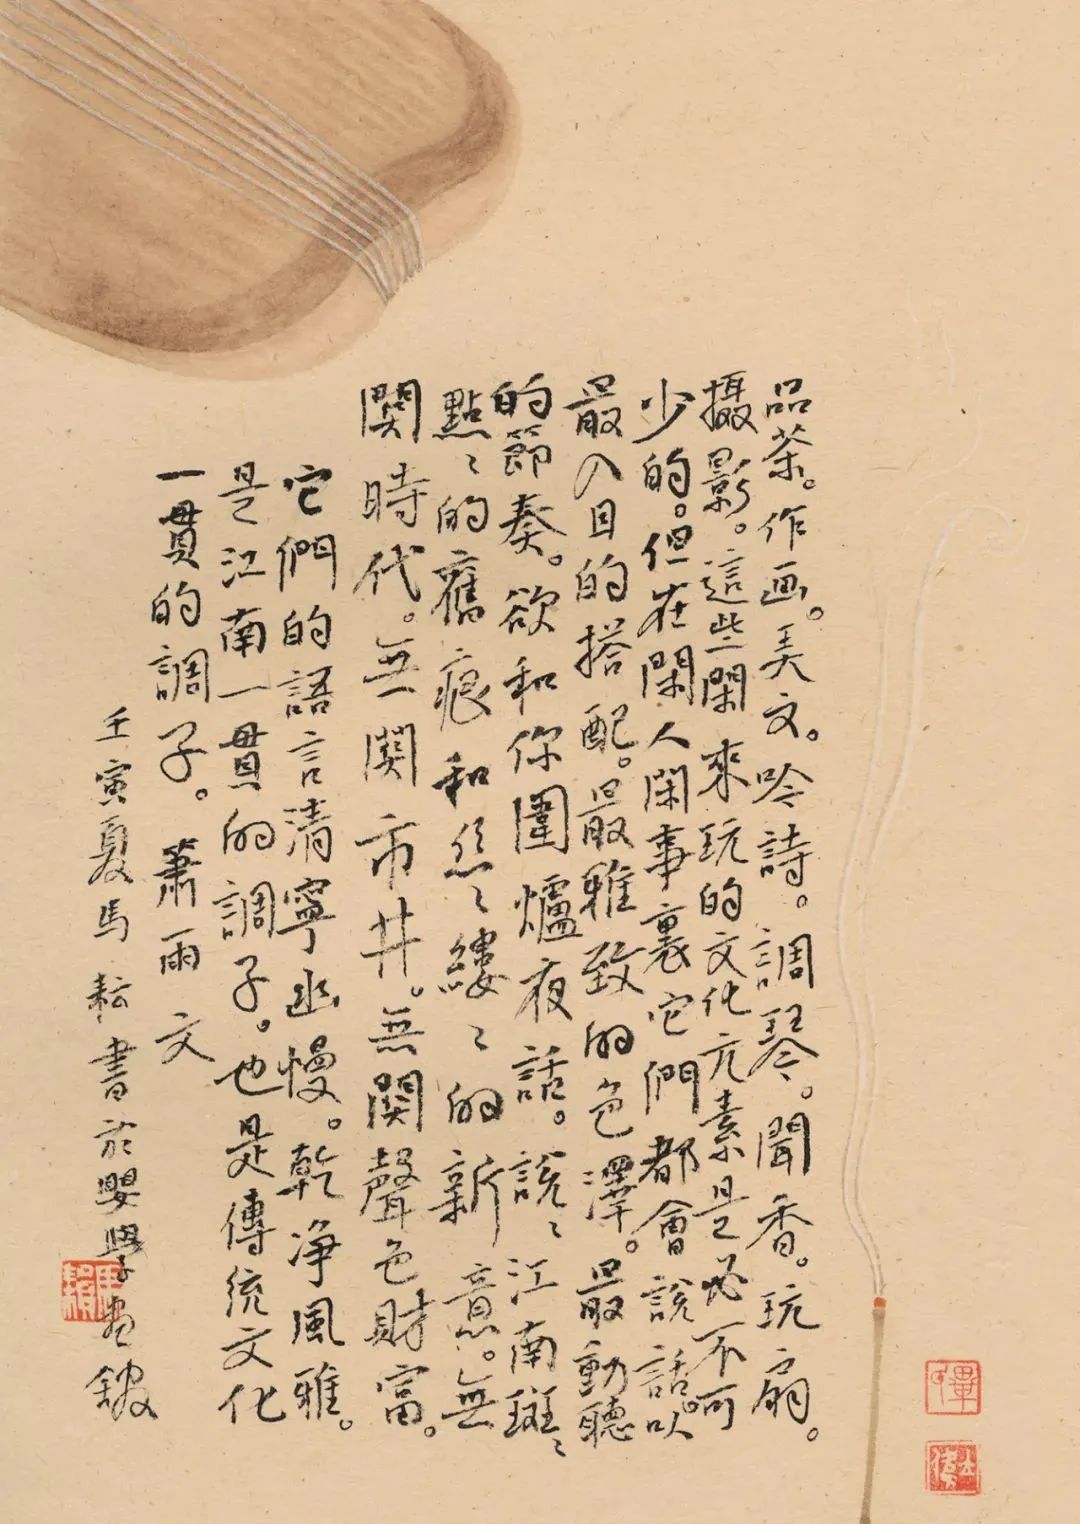 品茶。作画。美文。吟詩。調琴。聞香。玩扇。
摄影。這些閑來玩的文化元素是必不可
少的。但在閑人閑事裏它們都會說話。以
最入目的搭配。最雅致的色澤。最動聽
的節奏。欲和你圍爐夜話。說〻江南斑〻
點〻的舊痕和絲〻縷〻的新意。無
関時代。無関市井。無関聲色財富。
它們的語言清寧幽慢。乾净風雅。
是江南一貫的調子。也是傳統文化
一貫的調子。 蕭雨文
壬寅夏馬耘書於嬰學書館